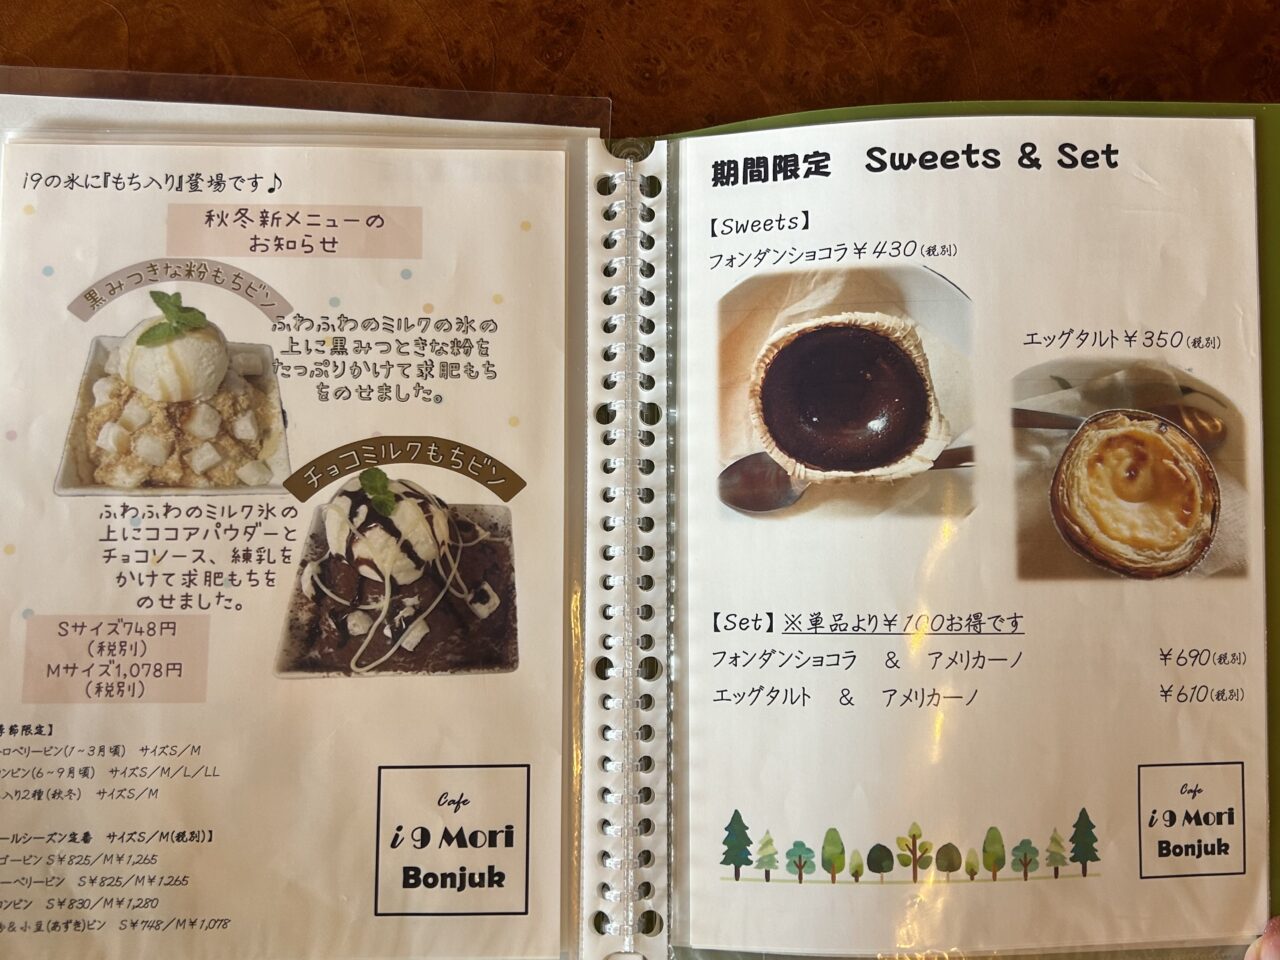 i9の氷に『もち入り』登場です♪
秋冬新メニューの
お知らせ
黒みつきな粉もちビン
ふわふわのミルクの氷の
上に黒みつときな粉を
たっぷりかけて求肥もち
をのせました。
チョコミルクもちビン
ふわふわのミルク氷の
上にココアパウダーと
チョコソース、練乳を
かけて求肥もちを
のせました。
Sサイズ748円
(税別)
Mサイズ1,078円
(税別)
季節限定】
ロベリービン(1~3月頃) サイズS/M
ンビン(6~9月頃) サイズS/M/L/LL
入り2種(秋冬) サイズS/M
ールシーズン定番 サイズS/M(税別)】
ゴービン S¥825/M¥1,265
ーベリービン S¥825/M¥1,265
ンビン S¥830/M¥1,280
&小豆(あずき)ビン S¥748/M¥1,078
Cafe
i 9 Mori
Bonjuk
期間限定 Sweets & Set
【Sweets】
フォンダンショコラ¥430(税別)
エッグタルト¥350(税別)
【Set】※単品より¥100お得です
フォンダンショコラ & アメリカーノ ¥690(税別)
エッグタルト & アメリカーノ ¥610(税別)
Cafe
i 9 Mori
Bonjuk